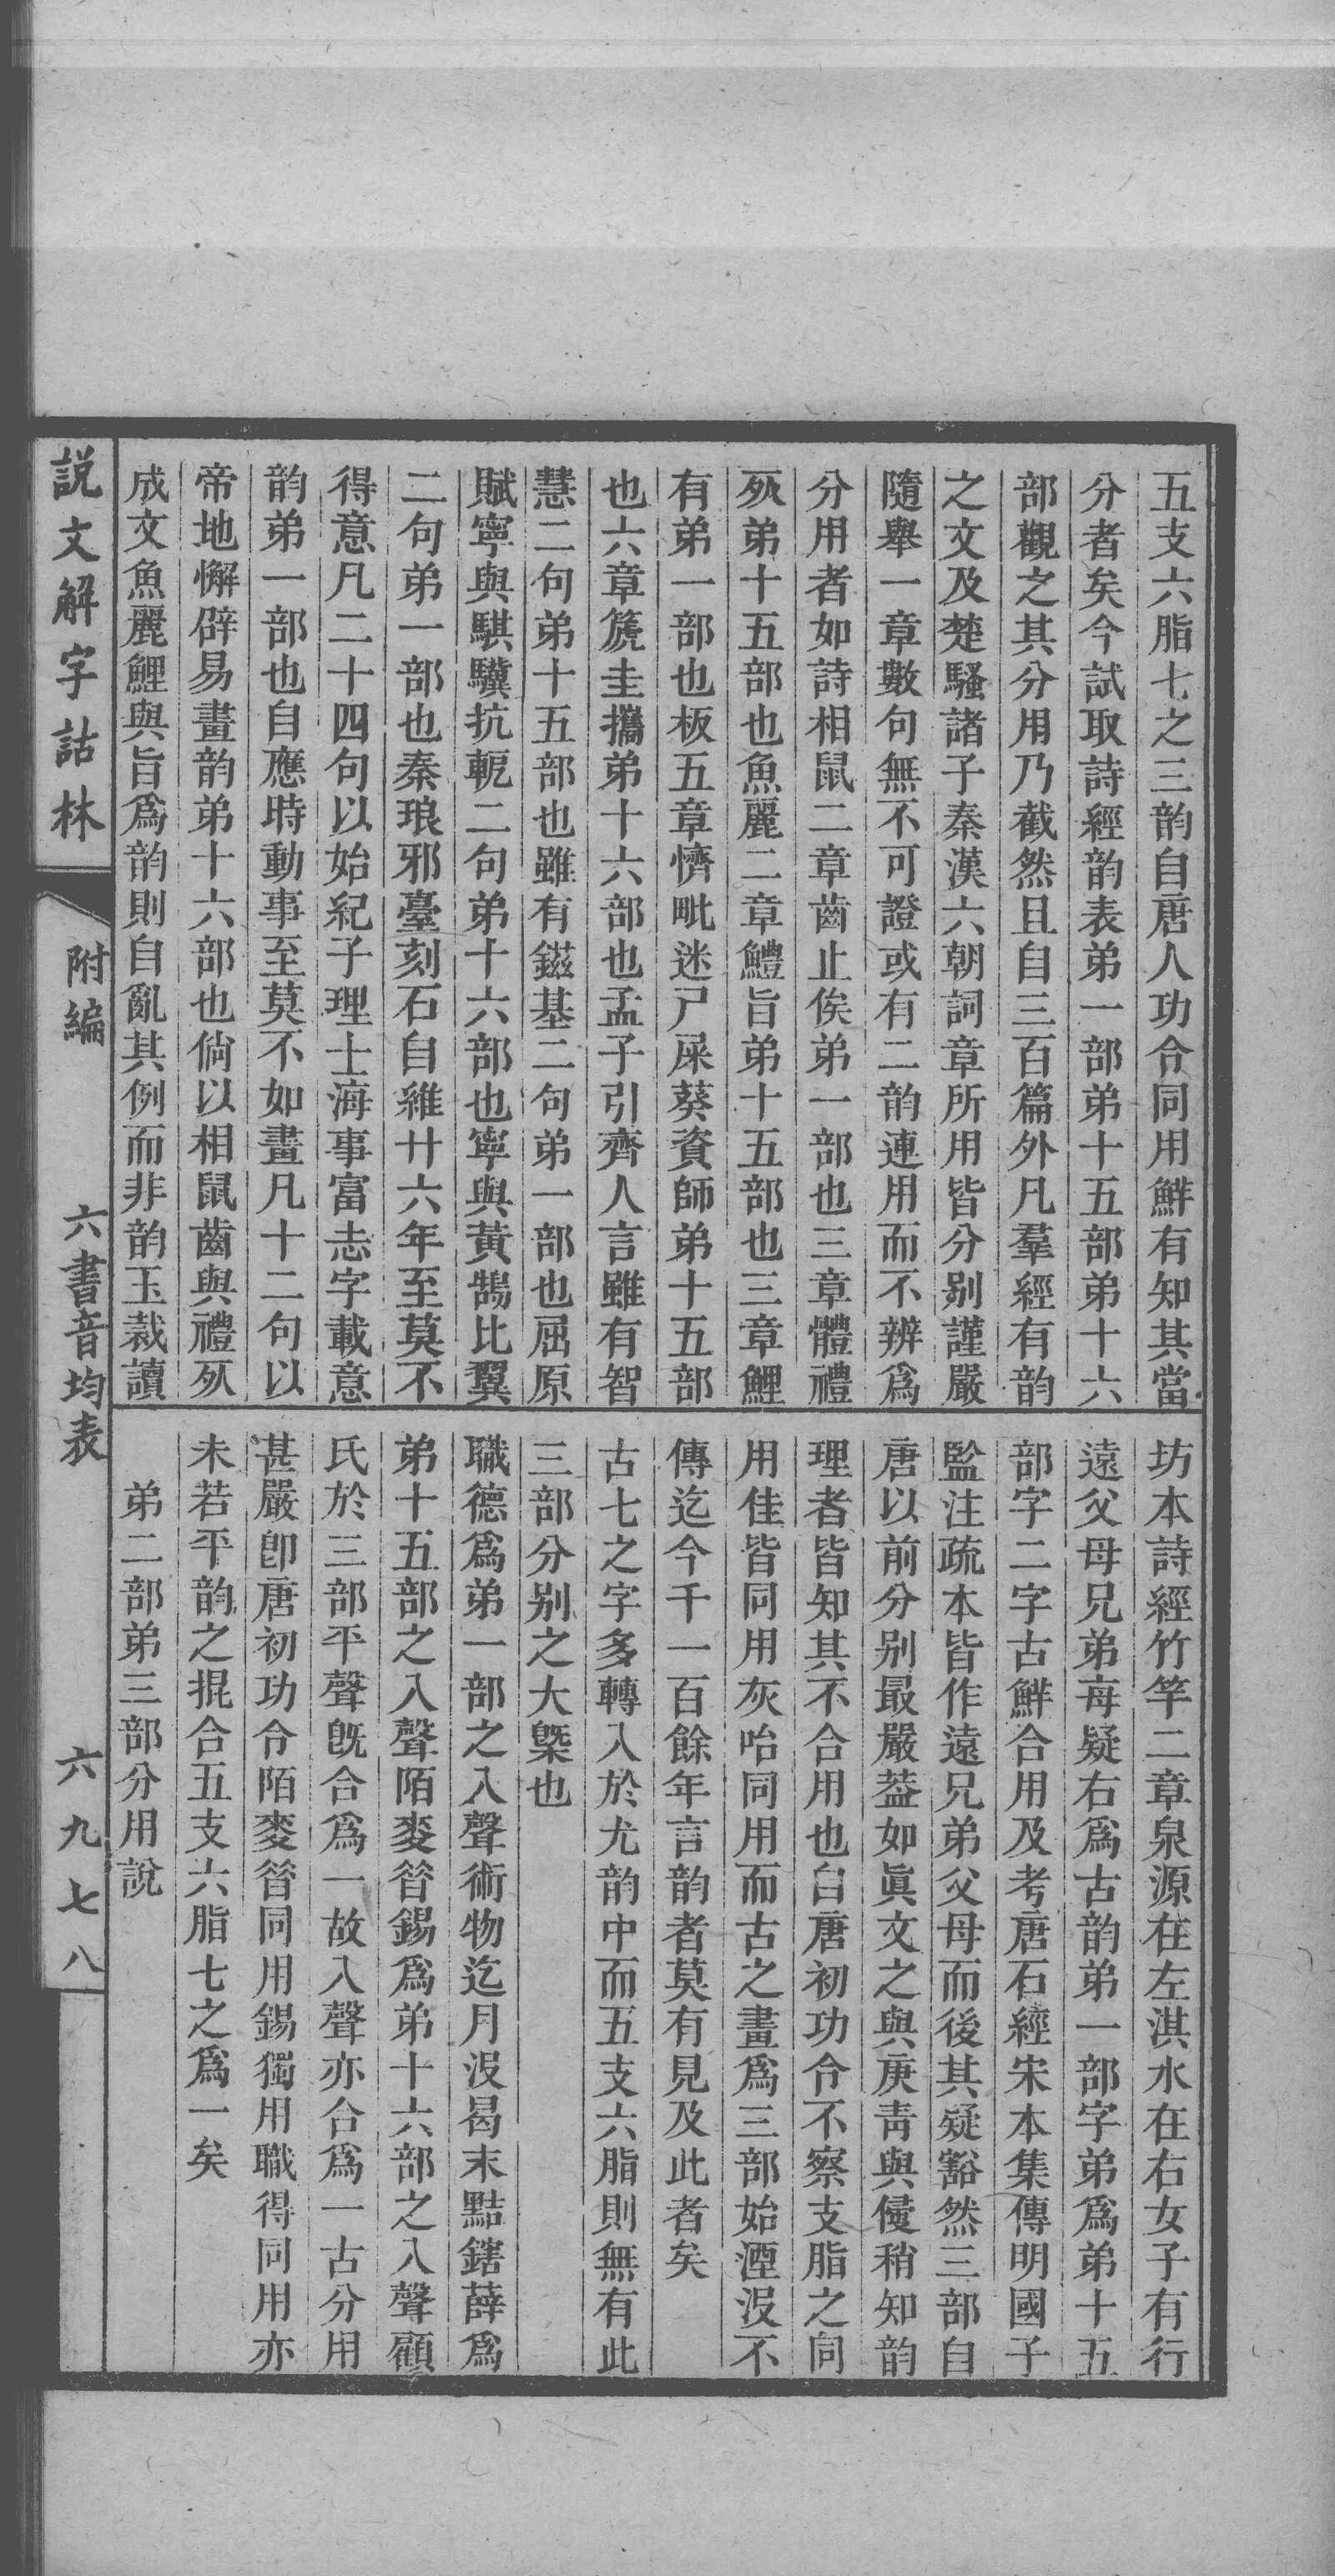 五支六脂七之三韵自唐人功令同用鮮有知其當
分者矣今試取詩經韵表弟一部弟十五部弟十六
部觀之其分用乃截然且自三百篇外凡羣經有韵
之文及楚騷諸子秦漢六朝詞章所用皆分别謹嚴
隨舉一章數句無不可證或有二韵連用而不辨爲
分用者如詩相鼠二章齒止俟弟一部也三章體禮
死弟十五部也魚麗二章鱧旨弟十五部也三章鯉
有弟一部也板五章懠毗迷尸屎葵資師弟十五部
也六章篪圭攜弟十六部也孟子引齊人言雖有智
慧二句弟十五部也雖有鎡基二句弟一部也屈原
賦寧與騏驥抗軛二句弟十六部也寧與黃鵠比翼
二句弟一部也秦琅邪臺刻石自維廿六年至莫不
得意凡二十四句以始紀子理士海事富志字載意
韵弟一部也自應時動事至莫不如畫凡十二句以
帝地懈辟易畫韵弟十六部也倘以相鼠齒與禮死
成文魚麗鯉與旨爲韵則自亂其例而非韵玉裁讀
坊本詩經竹竿二章泉源在左淇水在右女子有行
遠父母兄弟每疑右爲古韵弟一部字弟爲弟十五
部字二字古鮮合用及考唐石經宋本集傳明國子
監注疏本皆作遠兄弟父母而後其疑豁然三部自
唐以前分别最嚴葢如眞文之與庚青與侵稍知韵
理者皆知其不合用也自唐初功令不察支脂之同
用佳皆同用灰咍同用而古之畫爲三部始湮没不
傳迄今千一百餘年言韵者莫有見及此者矣
古七之字多轉入於尤韵中而五支六脂則無有此
三部分别之大槩也
職德爲弟一部之入聲術物迄月没曷末黠鎋薛爲
弟十五部之入聲陌麥昝錫爲弟十六部之入聲顧
氏於三部平聲旣合爲一故入聲亦合爲一古分用
甚嚴卽唐初功令陌麥昝同用錫獨用職得同用亦
未若平韵之掍合五支六脂七之爲一矣
弟二部弟三部分用說
説文解字詁林
附編
六書音均表
六九七八